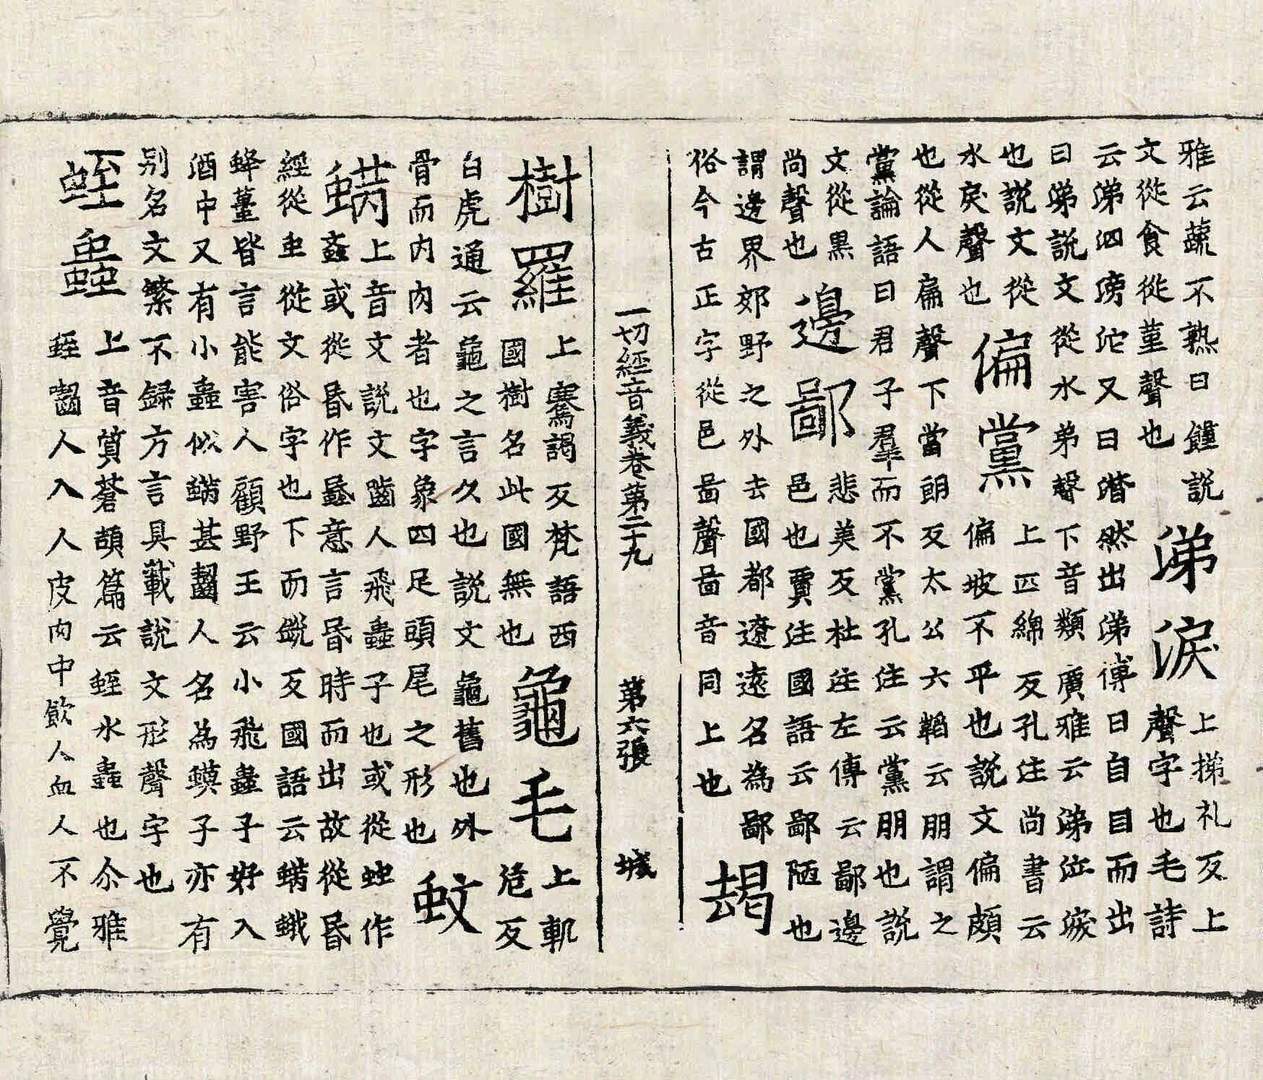 雅云蔬不熟曰饉説
文從食從堇聲也
涕淚
上挮礼反上
聲字也毛詩
云涕泗滂沱又曰潸然出涕傳曰自目而出
曰涕説文從水弟聲下音類廣雅云涕泣淚
也説文從
水戾聲也
偏黨
上匹綿反孔注尚書云
偏坡不平也説文偏頗
也從人扁聲下當朗反太公六韜云朋謂之
黨論語曰君子羣而不黨孔注云黨朋也説
文從黑
尚聲也
邊鄙
悲美反杜注左傳云鄙邊
邑也賈注國語云鄙陋也
謂邊界郊野之外去國都遼遠名為鄙
俗今古正字從邑啚聲啚音同上也
朅
一切經音義卷第二十九 第六張 城
樹羅
上騫謁反梵語西
國樹名此國無也
龜毛
上軌
危反
白虎通云龜之言久也説文龜舊也外
骨而内肉者也字象四足頭尾之形也
蚊
蟎
上音文説文齧人飛蟲子也或從䖵作
䘇或從昏作蟁意言昏時而出故從昏
經從虫從文俗字也下而鋭反國語云蟎蛾
蜂蠆皆言能害人顧野王云小飛蟲子好入
酒中又有小蟲似蟎甚齧人名為蟆子亦有
別名文繁不録方言具載説文形聲字也
蛭蟲
上音質蒼頡篇云蛭水蟲也尒雅
蛭齧人入人皮肉中飲人血人不覺